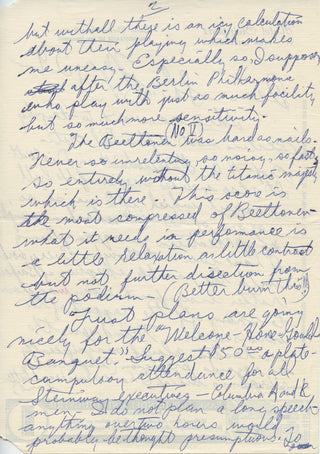 2
but withall there is an icy calculation
about their playing which makes
me uneasy. Especially so, I suppose,
after the Berlin Philharmonic
who play with just as much facility
but so much more sensitivity.
The Beethoven (No II) was hard as nails.
Never so unrelenting so noisy, so fast,
so entirely without the titanic majesty
which is there. This score is
the most compressed of Beethoven –
what it needs in performance is
a little relaxation a little contrast
but not further disection from
the podium – (Better burn this!!)
Trust plans are going
nicely for the "Welcome-Home-Gould
Banquet." Suggest $50.00 a plate –
compulsory attendance for all
Steinway executives – Columbia A and R
men. I do not plan a long speech –
anything over two hours would
probably be thought presumptious. To